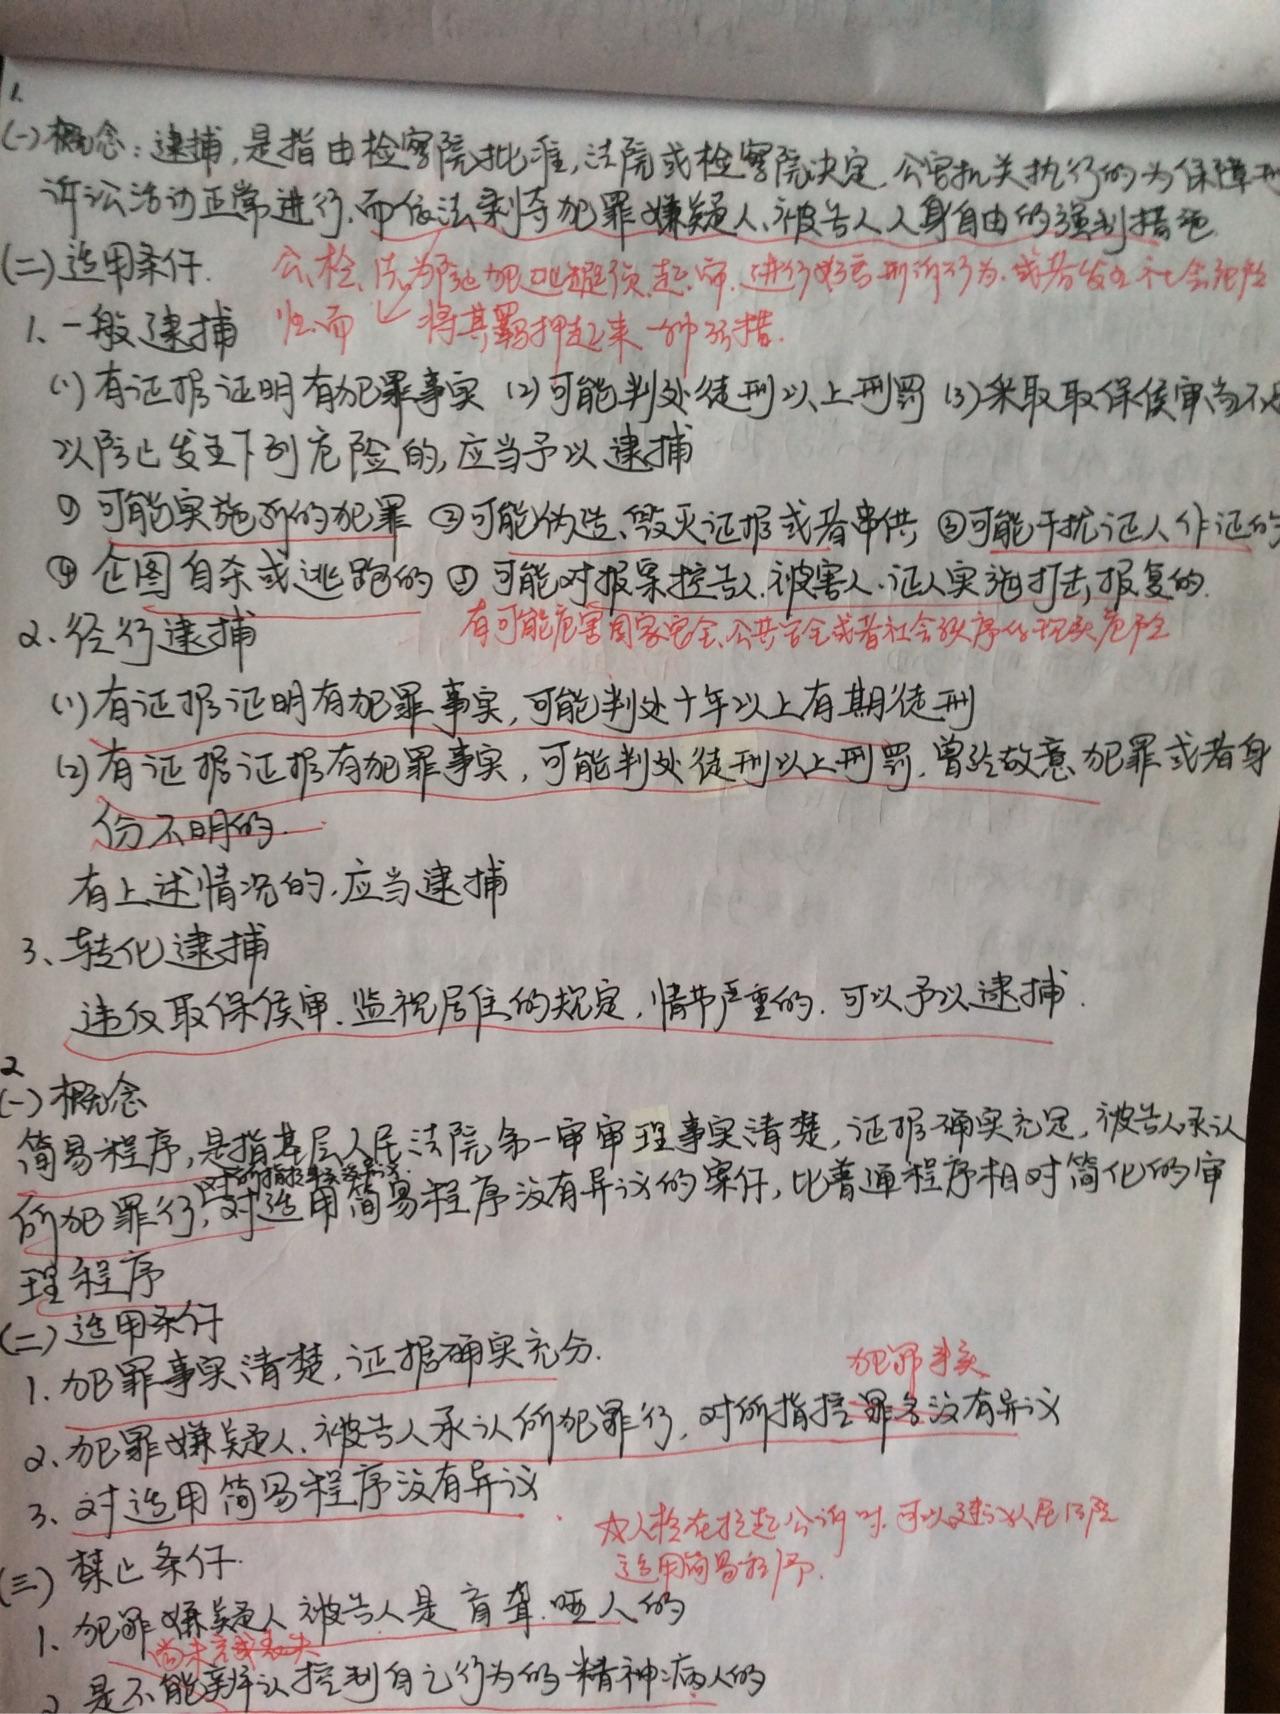 1.
(一)概念:逮捕,是指由检察院批准,法院或检察院决定,公安机关执行的为保障刑
诉讼活动正常进行,而依法剥夺犯罪嫌疑人、被告人人身自由的强制措施
(二)适用条件.
公、检、法为防止犯逃避侦、起、审、进行妨害刑诉行为,或者发生社会危险
性,而 将其羁押起来一种强措.
1、一般逮捕
(1)有证据证明有犯罪事实 (2)可能判处徒刑以上刑罚 (3)采取取保候审尚不足
以防止发生下列危险的,应当予以逮捕
①可能实施新的犯罪 ②可能伪造、毁灭证据或者串供 ③可能干扰证人作证的
④企图自杀或逃跑的 ⑤可能对报案控告人、被害人、证人实施打击,报复的.
有可能危害国家安全、公共安全或者社会秩序的现实危险
2、径行逮捕
(1)有证据证明有犯罪事实,可能判处十年以上有期徒刑
(2)有证据证据有犯罪事实,可能判处徒刑以上刑罚,曾经故意犯罪或者身
份不明的.
有上述情况的,应当逮捕
3、转化逮捕
违反取保候审、监视居住的规定,情节严重的,可以予以逮捕.
2
(一)概念
简易程序,是指基层人民法院第一审审理事实清楚,证据确实充足,被告人承认
所犯罪行,对适用简易程序没有异议的案件,比普通程序相对简化的审
理程序
(二)适用条件
1.犯罪事实清楚,证据确实充分.
犯罪事实
2、犯罪嫌疑人、被告人承认所犯罪行,对所指控罪名没有异议
3、对适用简易程序没有异议
☆人检在提起公诉时,可以建议人民法院
适用简易程序.
(三)禁止条件.
1、犯罪嫌疑人被告人是盲聋、哑人的
尚未完或丧失
2 是不能辨认控制自己行为的精神病人的